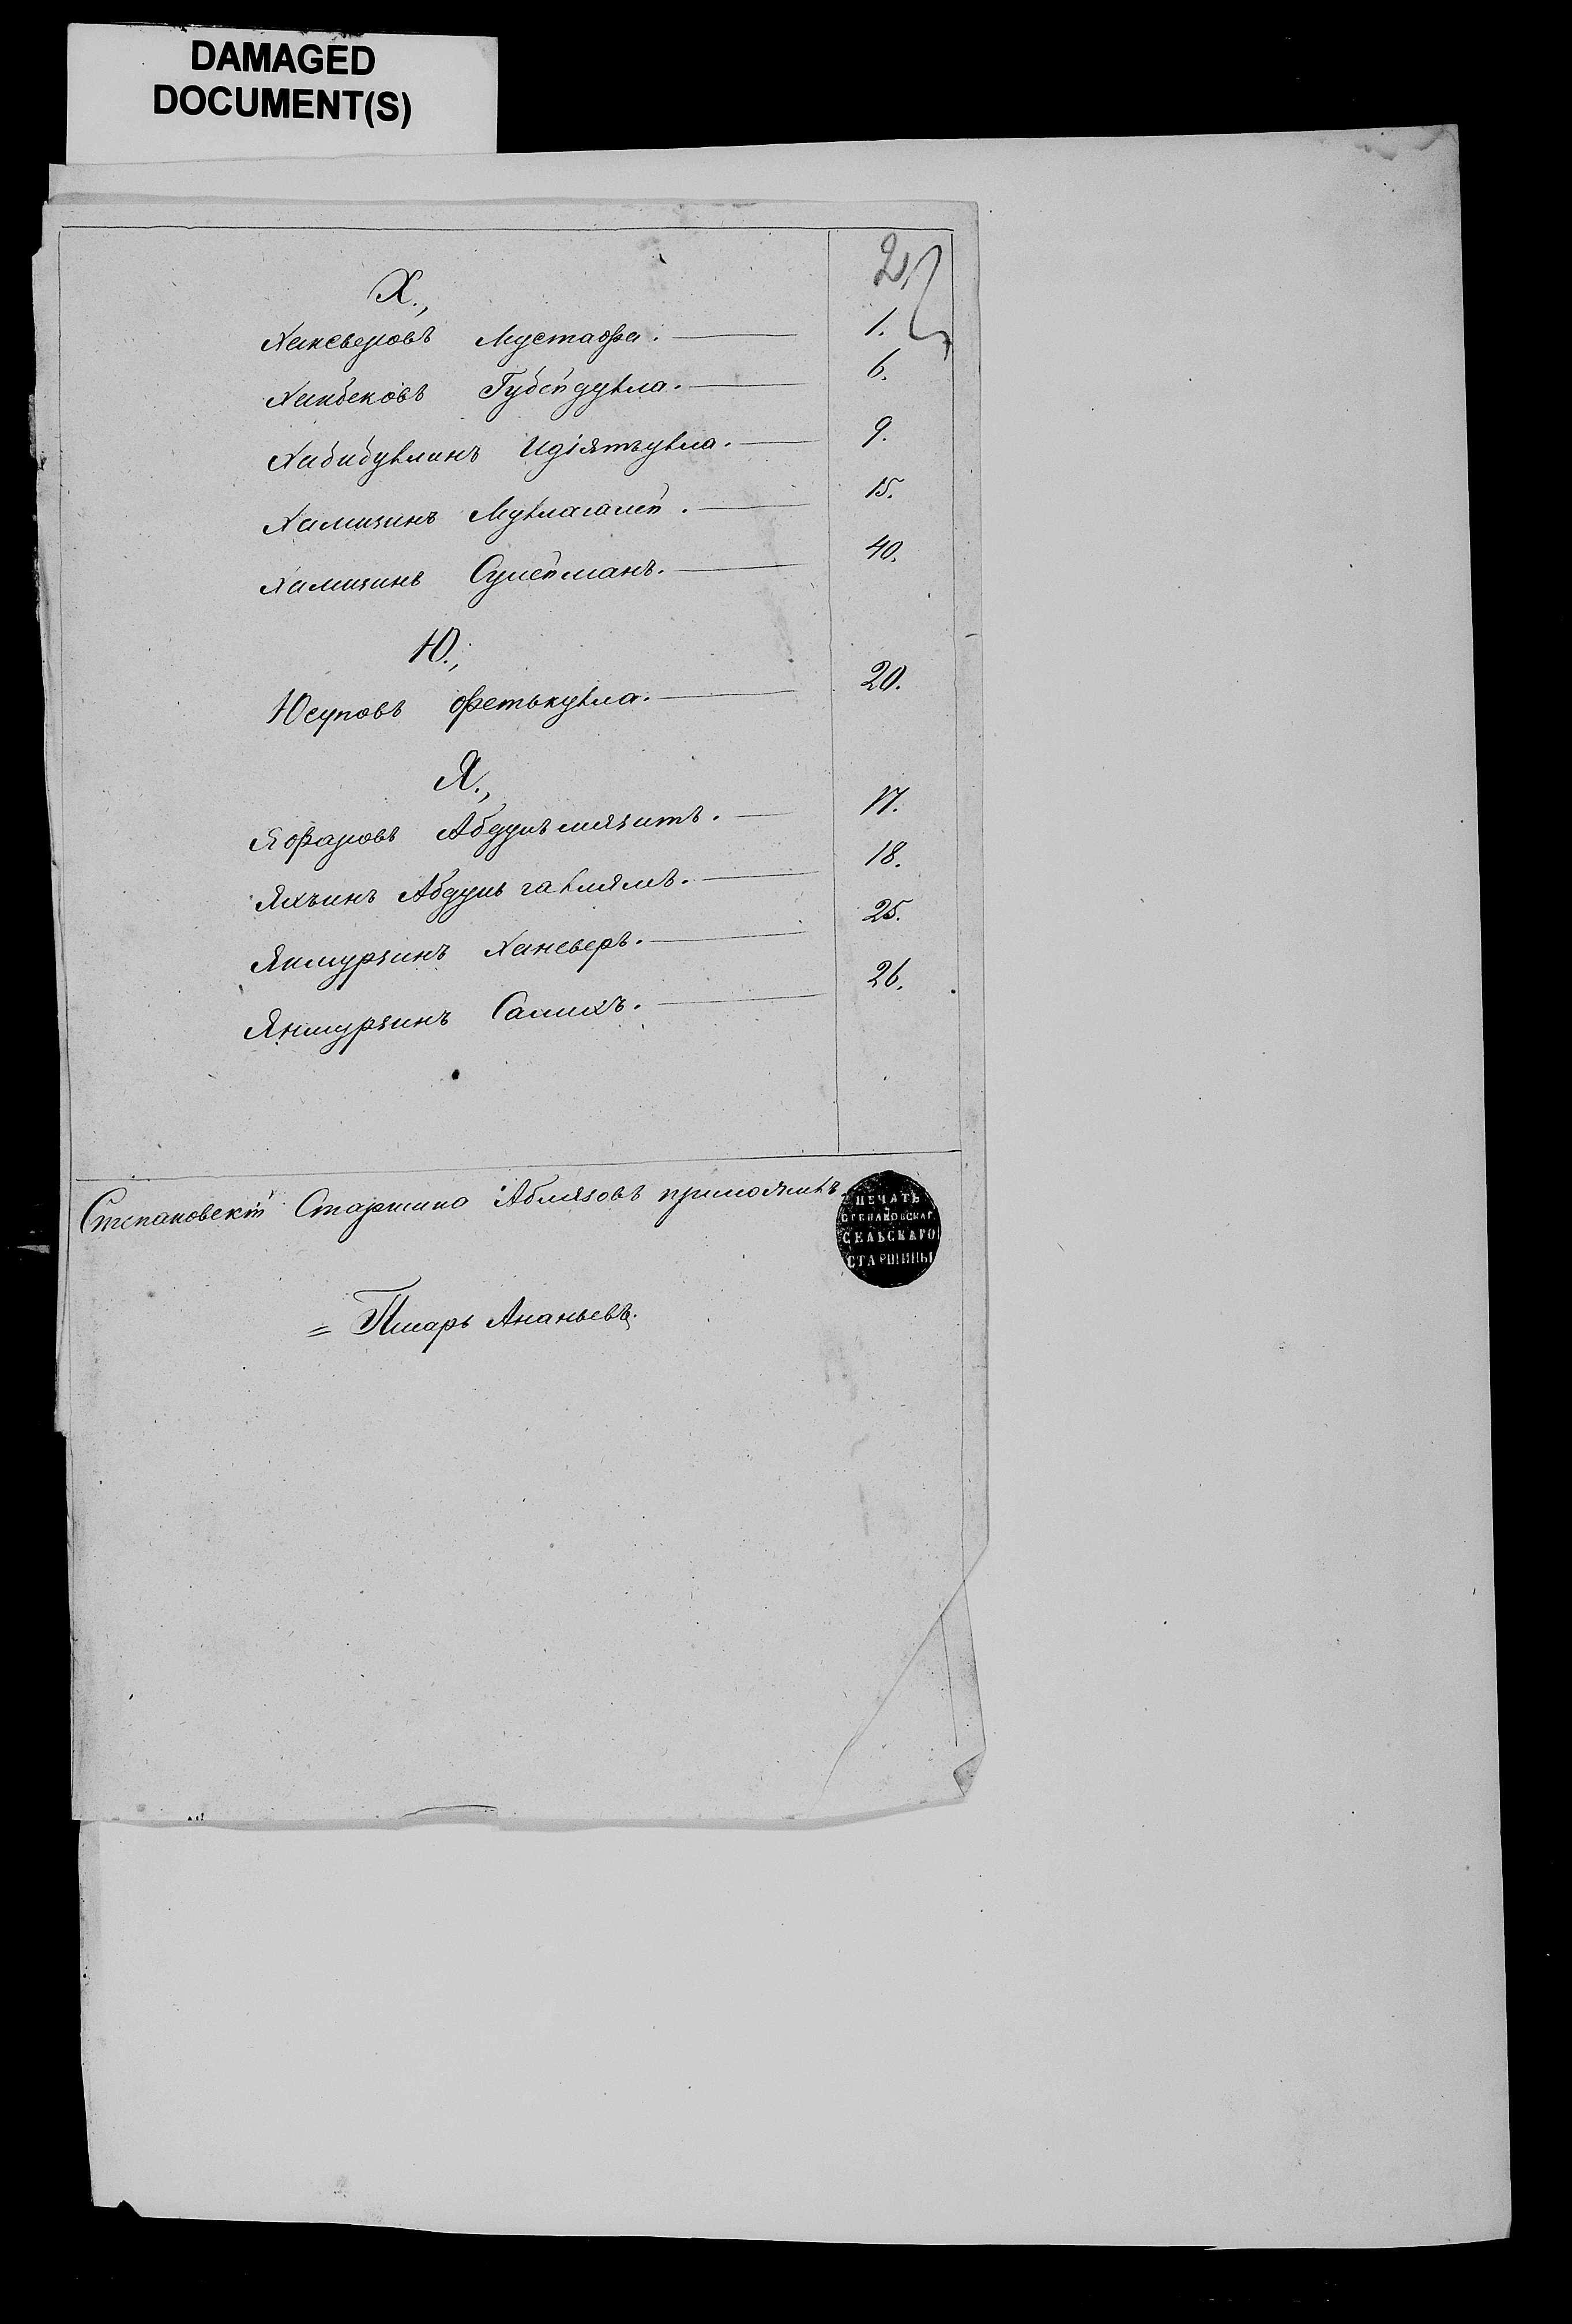 DAMAGED
DOCUMENT(S)
2
Х.,
Ханеверовъ Мустафа. 1.
Ханбековъ Губейдулла. 6.
Хабибуллинъ Идіятъулла. 9.
Хамизинъ Муллагалей. 15.
Хамизинъ Сулейманъ. 40.
Ю.,
Юсуповъ Фетькулла. 20.
Я.,
Яфаровъ Абдулъмязитъ. 17.
Яхъинъ Абдулъ галлямъ. 18.
Янмурзинъ Ханеверъ. 25.
Янмурзинъ Салихъ. 26.
Степановскій Старшина Аблязовъ приложилъ.
ПЕЧАТЬ
СТЕПАНОВСКАГ.
СЕЛЬСКАГО
СТАРШИНЫ
= Писарь Ананьевъ.